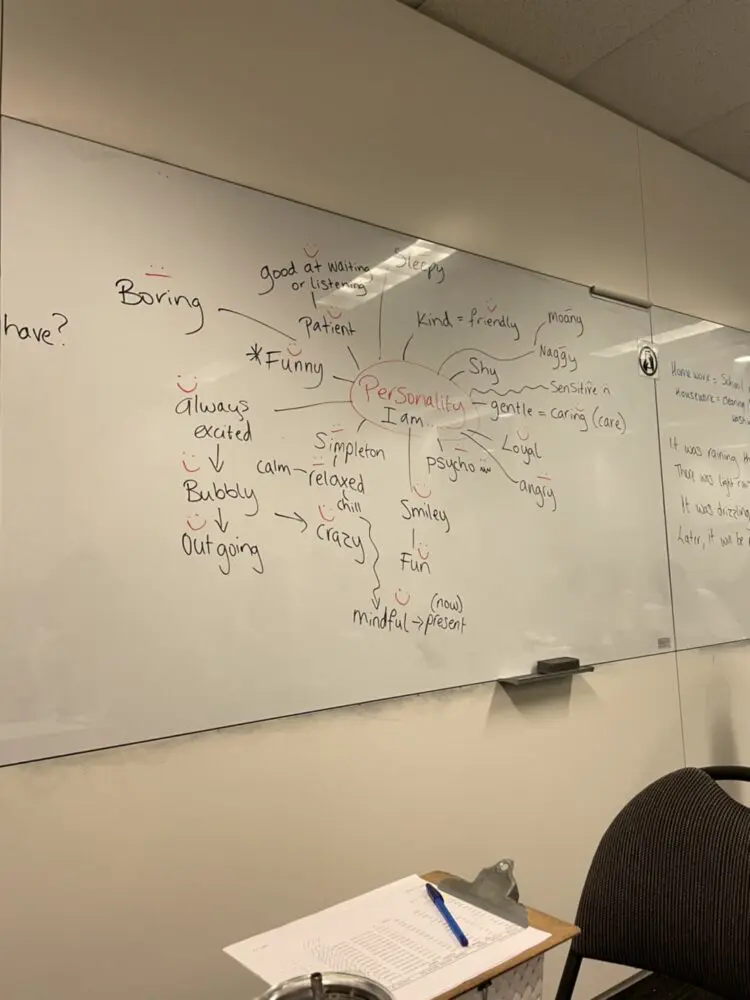 have?
Boring
good at waiting
or listening
Patient
Sleepy
Kind = friendly
moany
Naggy
Shy
Sensitive
gentle = caring (care)
Loyal
angry
psycho
*Funny
Personality
I am...
always
excited
Bubbly
Outgoing
Simpleton
calm - relaxed
chill
crazy
Smiley
Fun
mindful → present
(now)
Homework = School
Housework = cleaning
It was raining
There was light
It was drizzling
Later, it will be